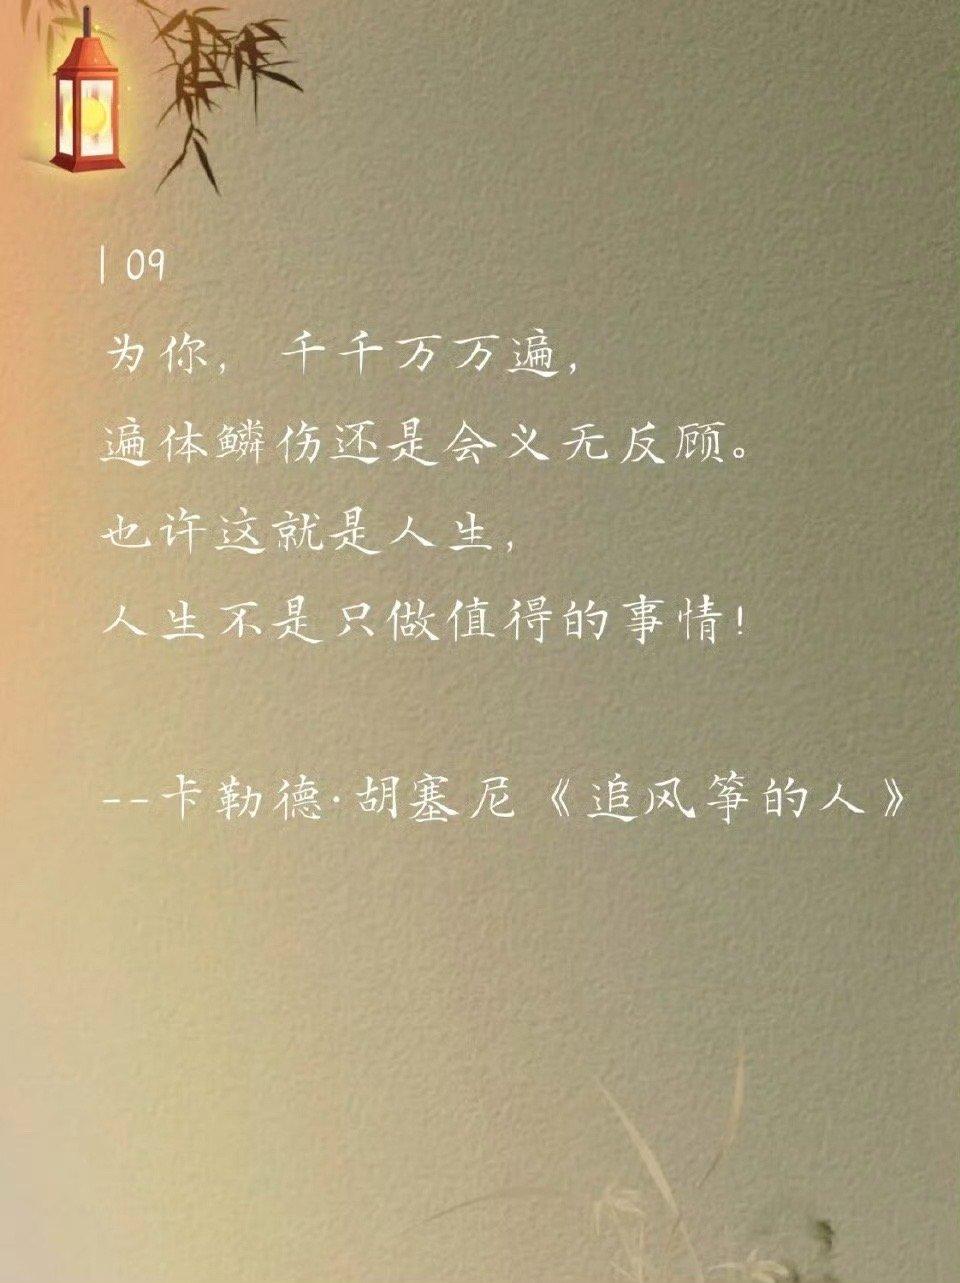 | 09
为你，千千万万遍，
遍体鳞伤还是会义无反顾。
也许这就是人生，
人生不是只做值得的事情！
--卡勒德·胡塞尼《追风筝的人》